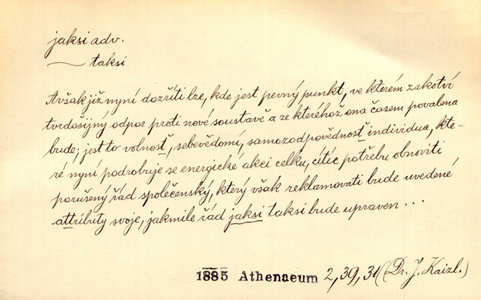 jaksi adv.
~ taksi
Avšak již nyní dozříti lze, kde jest pevný punkt, ve kterém zakotví
tvrdošijný odpor proti nové soustavě a ze kteréhož ona časem povalena
bude; jest to volnosť, sebevědomí, samozodpovědnosť individua, kte-
ré nyní podrobuje se energické akci celku, cítíc potřebu obnoviti
porušený řád společenský, který však reklamovati bude uvedené
attributy svoje, jakmile řád jaksi taksi bude upraven ...
1885 Athenaeum 2, 39, 31 (Dr. J. Kaizl.)